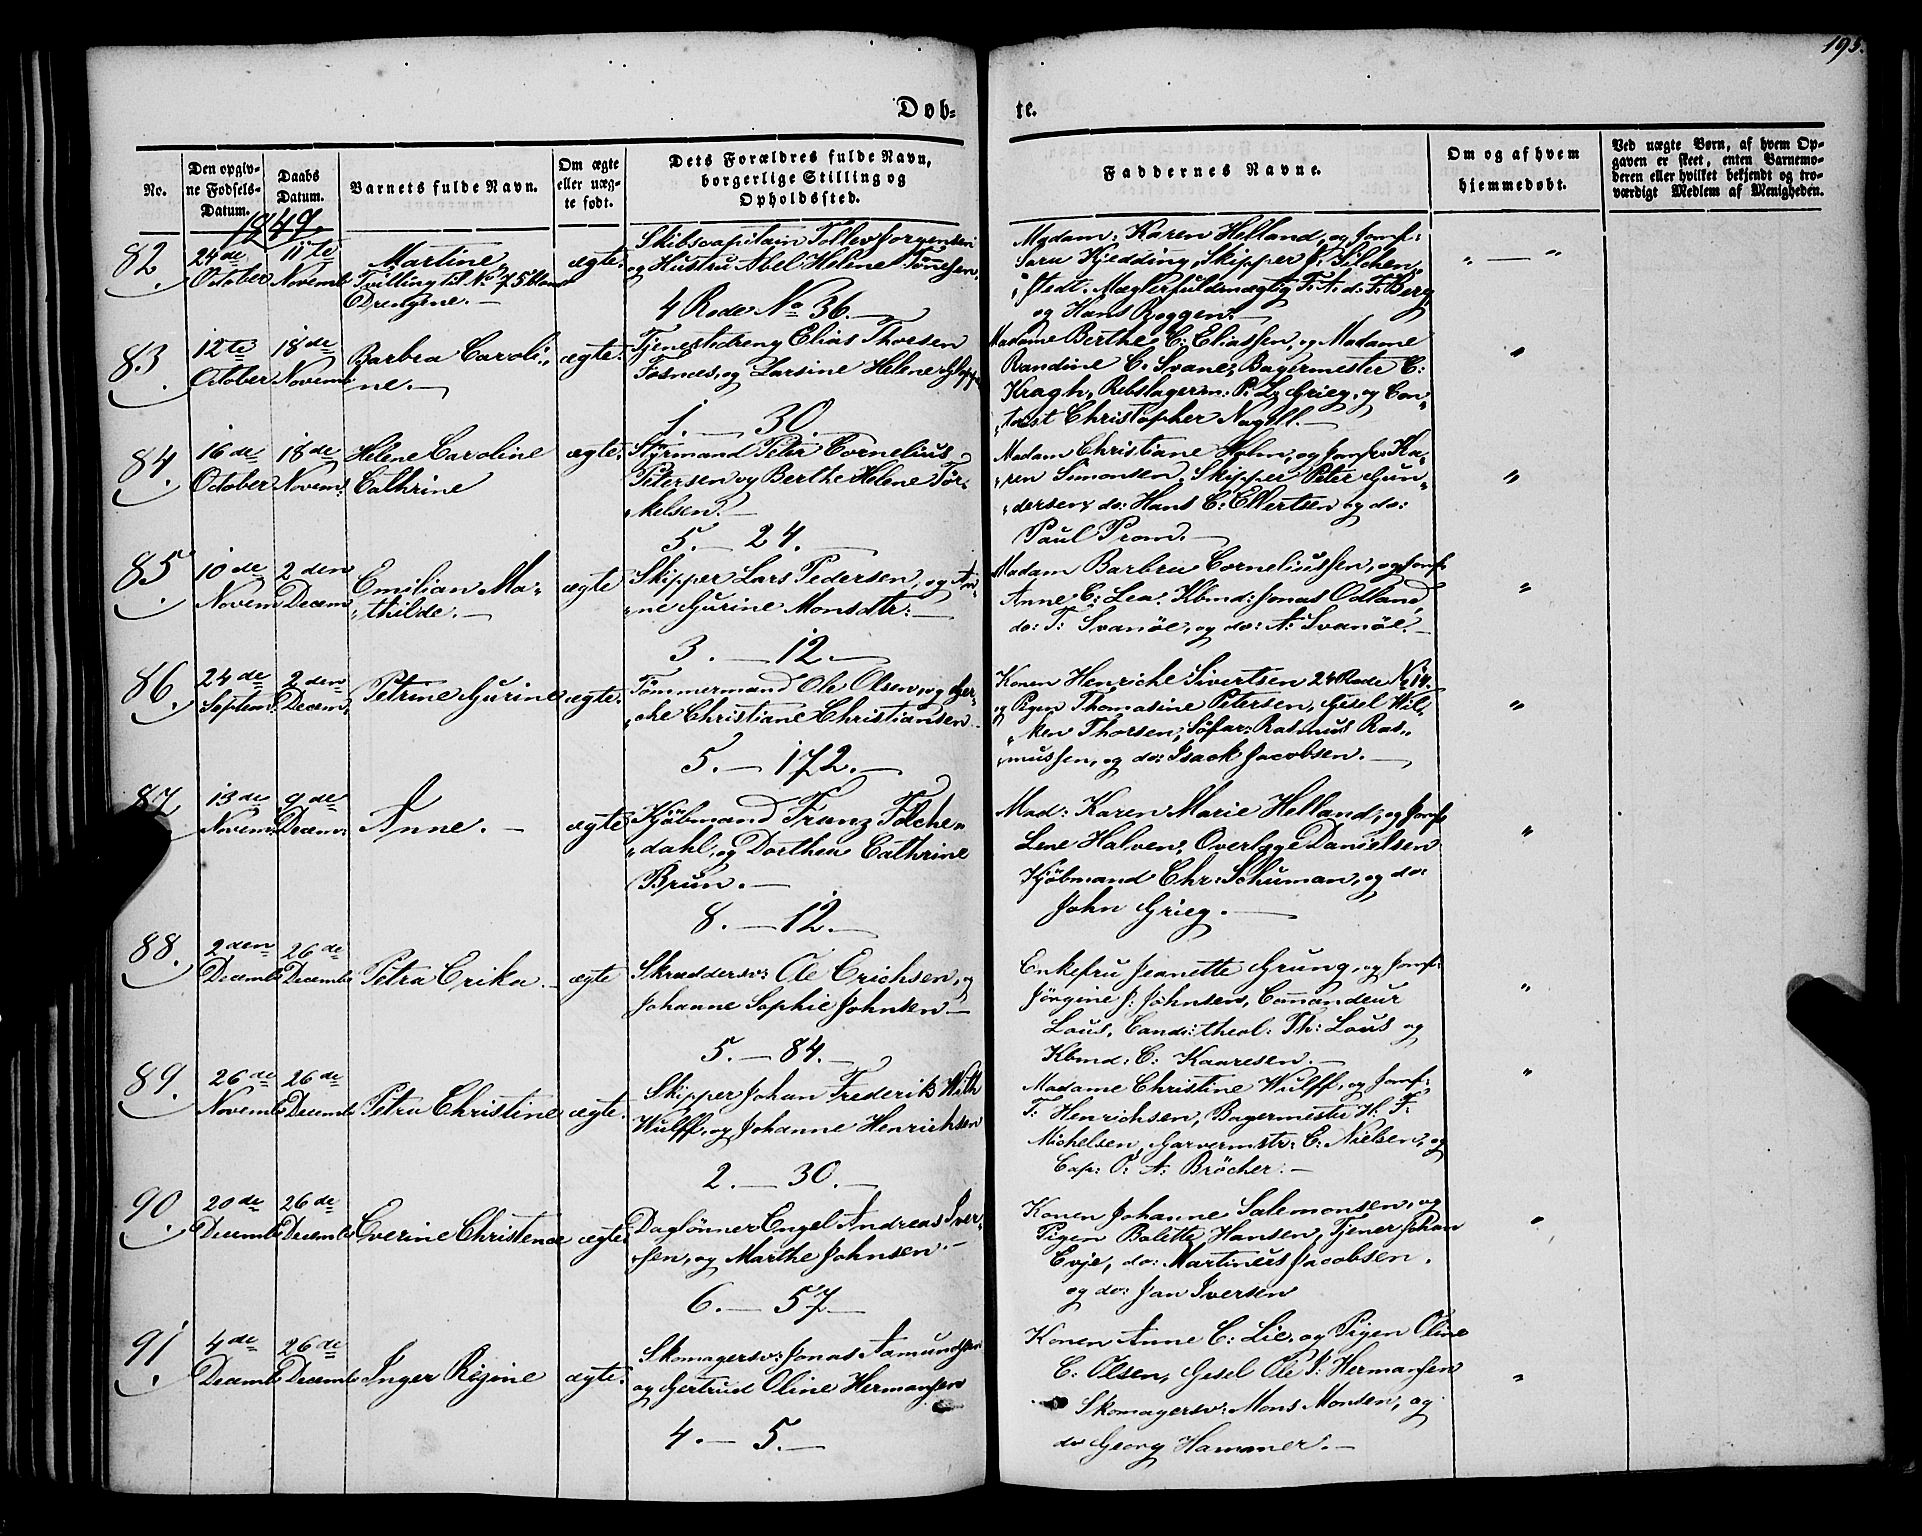 195.
Døb-
te.
No.
Den opgiv-
ne Fødsels-
Datum.
Daabs
Datum.
Barnets fulde Navn.
Om ægte
eller uæg-
te født.
Dets Forældres fulde Navn,
borgerlige Stilling og
Opholdssted.
Faddernes Navne.
Om og af hvem
hjemmedøbt.
Ved uægte Børn, af hvem Op-
gaven er skeet, enten Barnemo-
deren eller hvilket bekjendt og tro-
værdigt Medlem af Menigheden.
1849.
82.
24de
October
11te
Novemb
Martine
Tvilling til No 75 blandt
Drengene.—
ægte.
Skibscapitain Tollev Jørgensen
og Hustru Abel Helene Tönesen
4 Rode No 36.—
Madam: Karen Helland, og Jomf:
Sara Kjedding, Skipper
stedt. Mæglerfuldmægtig F: A: d: F: Berg
og Hans Boggen.—
" — "
83.
12te
October
18de
Novemb
Barbra Caroli-
ne.—
ægte.
Tjenestedreng Elias Thoesen
Fosnæs, og Larsine Helene
1.— 30.
Madame Berthe C: Eliassen, og Madame
Randine C. Svane, Bagermester C:
Kragh, Rebslagerm: P. L. Grieg, og Con-
Christopher Nagell.—
"
84.
16de
October
18de
Novem:
Helene Caroline
Cathrine
ægte.
Styrmand Peter Cornelius
Petersen og Berthe Helene Tør-
kelsen.—
5.— 24.—
Madam Christiane Holm, og Jomfr: Ka-
ren Simonsen, Skipper Peter Gun-
dersen, do: Hans C: Ellertsen og do:
Paul Prom.—
"
85.
10de
Novem:
2den
Decem:
Emilian Ma-
thilde.—
ægte
Skipper Lars Pedersen, og An-
ne Gurine Monsdtr:—
3.— 12.—
Madam Barbra Corneliussen, og Jomf:
Anne C: Lea. Kbmd: Jonas Odland,
do: T: Svanöe, og do: A: Svanöe.—
"
86.
24de
Septem:
2den
Decem:
Petrine Gurine
ægte.
Tömmermand Ole Olsen, og Ger-
che Christiane Christiansen.
5.— 172.—
Konen Henriche Sivertsen 24 Rode No 14.
og Pigen Thomasine Petersen, Gesel Wil-
ken Thorsen, Söfar: Rasmus Ras-
mussen, og do: Isack Jacobsen.—
"
87.
13de
Novem:
9de
Decem:
Anne.—
ægte
Kjöbmand Franz Fölche-
dahl, og Dorthea Cathrine
Brun.—
8.— 12.—
Mad: Karen Marie Helland, og Jomf:
Lene Halven, Overlæge Danielsen
Kjöbmand Chr: Schuman, og do:
John Grieg.—
"
88.
2den
Decemb
26de
Decemb
Petra Erika.
ægte
Skræddersv: Ole Erichsen, og
Johanne Sophie Johnsen—
5.— 84.—
Enkefru Jeanette Grung, og Jomf:
Jörgine J: Johnsen, Commandeur
Lous, Cand: theol: Th: Lous og
Kbmd: C: Kaaresen.—
"
89.
26de
Novemb
26de
Decemb
Petra Christine
ægte.
Skipper Johan Frederik With
Wulff, og Johanne Henrichsen
2.— 30.—
Madame Christine Wulff, og Jomf:
F: Henrichsen, Bagermester H: F:
Michelsen, Garvermstr: C: Nielsen, og
Cap: O: A: Bröcher.—
"
90.
20de
Decemb
26de
Decemb
Everine Christence
ægte.
Daglönner Engel Andreas Iver-
sen, og Marthe Johnsen.—
6.— 57—
Konen Johanne Salemonsen, og
Pigen Bolette Hansen, Tjener Johan
Evje, do: Martinus Jacobsen,
og do: Jan Iversen
"
91.
4de
Decemb
26de
Decemb
Inger Regine
ægte.
Skomagersv: Jonas Aamundsen
og Gertrud Oline Hermansen
4.— 5.—
Konen Anne C: Lie, og Pigen Oline
C: Olsen, Gesel Ole J: Hermansen
Skomagersv: Mons Monsen, og
do Georg Hammer.—
"